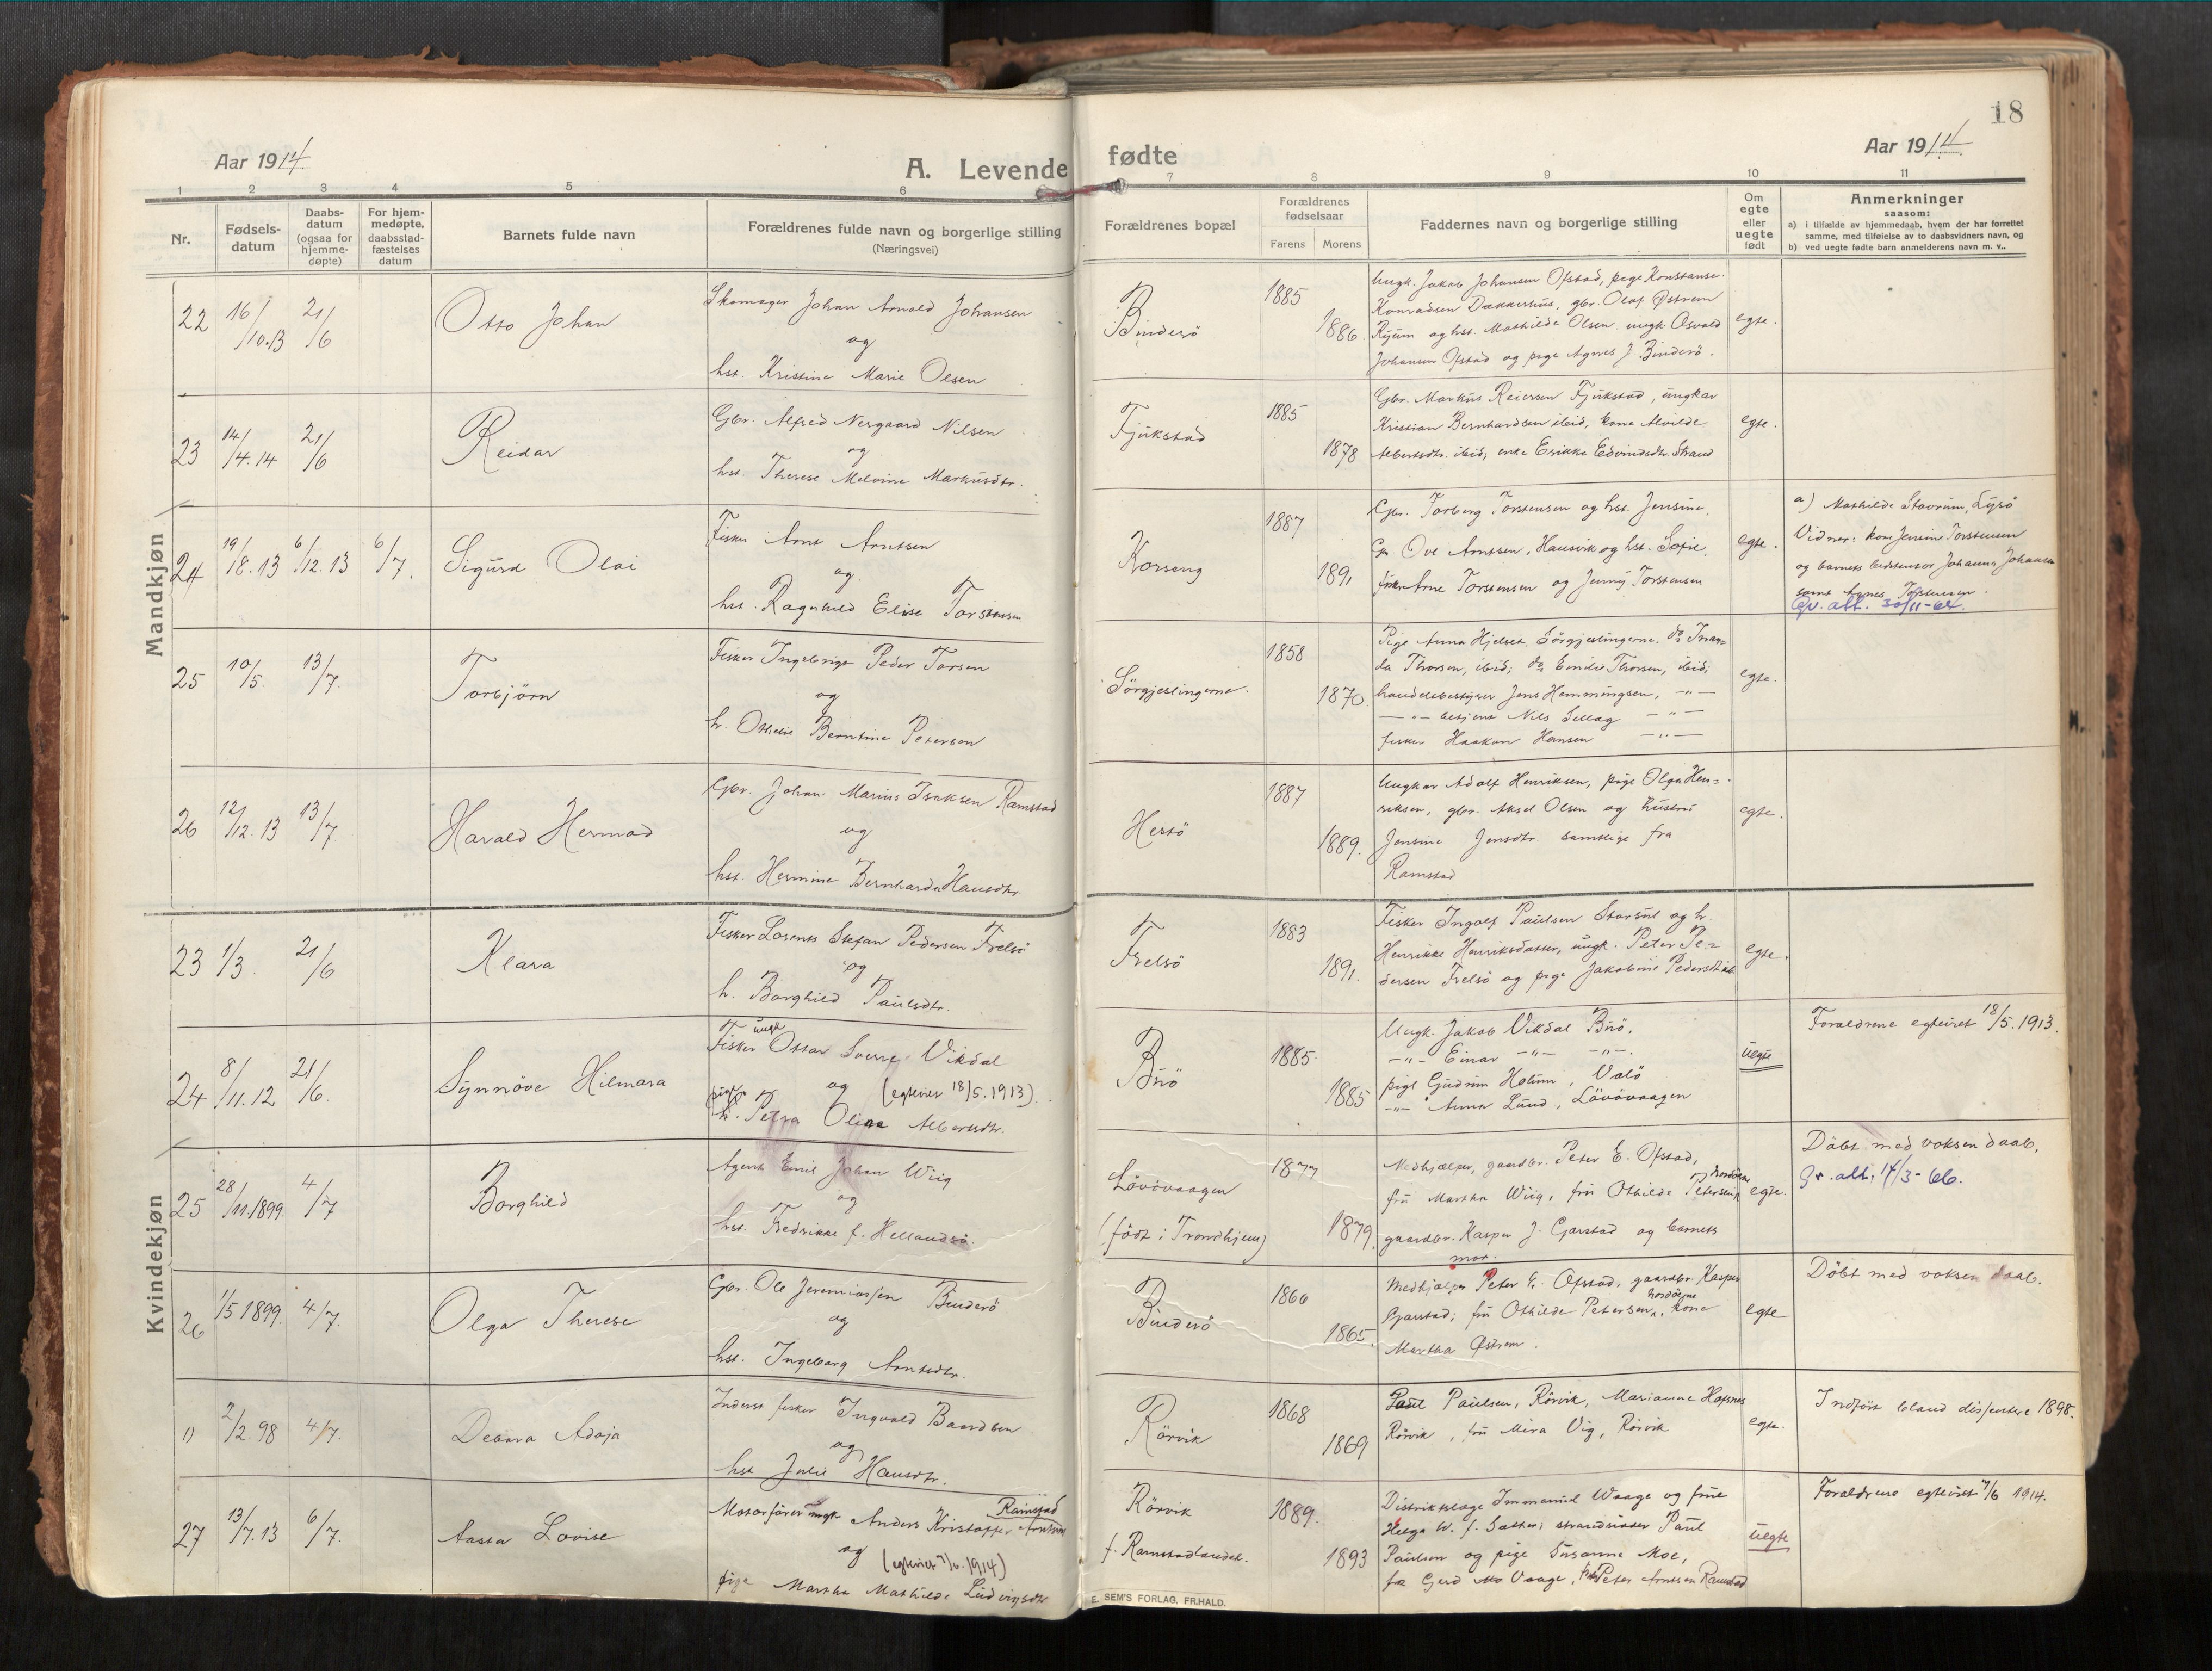 18
Aar 1914
A. Levende fødte
Aar 1914
1 2 3 4 5 6 7 8 9 10 11
Nr.
Fødsels-
datum
Daabs-
datum
(ogsaa for
hjemme-
døpte)
For hjem-
medøpte,
daabsstad-
fæstelses
datum
Barnets fulde navn
Forældrenes fulde navn og borgerlige stilling
(Næringsvei)
Forældrenes bopæl
Forældrenes
fødselsaar
Farens Morens
Faddernes navn og borgerlige stilling
Om
egte
eller
uegte
født
Anmerkninger
saasom:
a) i tilfælde av hjemmedaab, hvem der har forrettet
samme, med tilføielse av to daabsvidners navn, og
b) ved uegte fødte barn anmelderens navn m. v..
Mandkjøn
22
16/10.13
21/6
Otto Johan
Skomager Johan Arnold Johansen
og
hst. Kristine Marie Olsen
Binderö
1885
1886.
Ungk. Jakob Johansen Ofstad, pige Konstanse
Konradsen Dækkerhus, gbr. Olaf Østrem
Ryum og hst. Mathilde Olsen ungk. Osvald
Johansen Ofstad og pige Agnes J. Binderö.
egte.
23
14/4.14
21/6
Reidar
Gbr. Alfred Nergaard Nilsen
og
hst. Therese Melvine Markusdtr.
Fjukstad
1885
1878
Gbr. Markus Reiersen Fjukstad, ungkar
Kristian Bernhardsen ibid, kone Alvilde
Albertsdtr. ibid; enke Erikke Edvindsdtr. Strand
egte.
24
19/8.13
6/12.13
6/7.
Sigurd Olai
Fisker Arnt Arntsen
og
hst. Ragnhild Elise Torstensen
Korseng
1887
1891
Gbr. Torberg Torstensen og hst. Jensine,
Gbr. Ove Arntsen, Hansvik og hst. Sofie,
fisker Arne Torstensen og Jenny Torstensen
egte.
a) Mathilde Stavrum, Lysö
Vidner: kone Jensine Torstensen
og barnets bedstemor Johanna Johansen
samt Agnes Torstensen.
Gv. att. 30/11-64.
25
10/5.
13/7.
Torbjörn
Fisker Ingebrigt Peder Torsen
og
h. Othelie Berntine Petersen
Sörgjeslingerne.
1858
1870.
Pige Anna Hjelset Sörgjeslingerne. do Inan-
da Thorsen, ibid; do Emilie Thorsen, ibid;
handelsbestyrer Jens Hemmingsen, -"-
-"- betjent Nils Sellæg -"-
fisker Haakon Hansen -"-
egte.
26
12/12.13
13/7.
Harald Hermod
Gbr. Johan Marius Isaksen Ramstad
og
hst. Hermine Bernharda Hansdtr.
Hestö
1887
1889.
Ungkar Adolf Henriksen, pige Olga Hen-
riksen, gbr. Aksel Olsen og hustru
Jensine Jensdtr. samtlige fra
Ramstad
egte.
Kvindekjøn
23
1/3.
21/6
Klara
Fisker Lorents Stefan Pedersen Frelsö
og
h. Borghild Paulsdtr.
Frelsö
1883
1891.
Fisker Ingolf Paulsen Storsul og h.
Henrikke Henriksdatter, ungk. Peter Pe-
dersen Frelsö og pige Jakobine Pedersdtr. ibid
egte.
24
8/11.12
21/6.
Synnöve Hilmara
Fisker ungk Ottar Sverre Vikdal
og (egteviet 18/5.1913)
pige
h. Petra Oline Albertsdtr.
Buö
1885.
1885
Ungk. Jakob Vikdal Buö,
-"- Einar -"- -"-.
pige Gudrun Holum, Valö
-"- Anna Lund, Lövövaagen
uegte
Foraldrene egteviet 18/5.1913.
25
28/11.1899.
4/7
Borghild
Agent Emil Johan Wiig
og
hst. Fredrikke f. Hellandsö.
Lövövaagen
(födt i Trondhjem)
1877
1879.
Medhjælper, gaardbr. Peter E. Ofstad,
fru Martha Wiig, fru Othilde Petersen, Nordöerne
gaardbr. Kasper J. Garstad og barnets
mor.
egte.
Döbt med voksen daab.
Gv. att. 17/3-66.
26
1/5 1899.
4/7.
Olga Therese
Gbr. Ole Jeremiassen Binderö
og
hst. Ingeborg Arntsdtr.
Binderö
1866
1865.
Medhjælper Peter E. Ofstad, gaardbr. Kasper
Garstad; fru Othilde Petersen, Nordöerne, kone
Martha Østrem.
egte
Döbt med voksen daab.
1)
2/2 98
4/7.
Debora Adoja
Inderst fisker Ingvald Baardsen
og
hst Julie Hansdtr.
Rörvik
1868
1869
Paul Paulsen, Rörvik, Marianne Hofsnes
Rörvik, fru Mira Vig, Rörvik
egte.
Indfört bland dissentere 1898.
27
13/7.13
6/7.
Aasta Lovise
Motorförer ungk Anders Kristoffer Arntsen Ramstad
og (egteviet 7/6.1914)
pige Martha Mathilde Ludvigsdtr.
Rörvik
f. Ramstadlandet.
1889.
1893
Distriktslæge Immanuel Waage og frue
Helga W. f. Sæther; strandsidder Paul
Paulsen og pige Susanne Moe,
fr Gerd Vaage, Peter Arntsen Ramstad
uegte
Foraldrene egteviet 7/6 1914.
E. SEM'S FORLAG, FR.HALD.